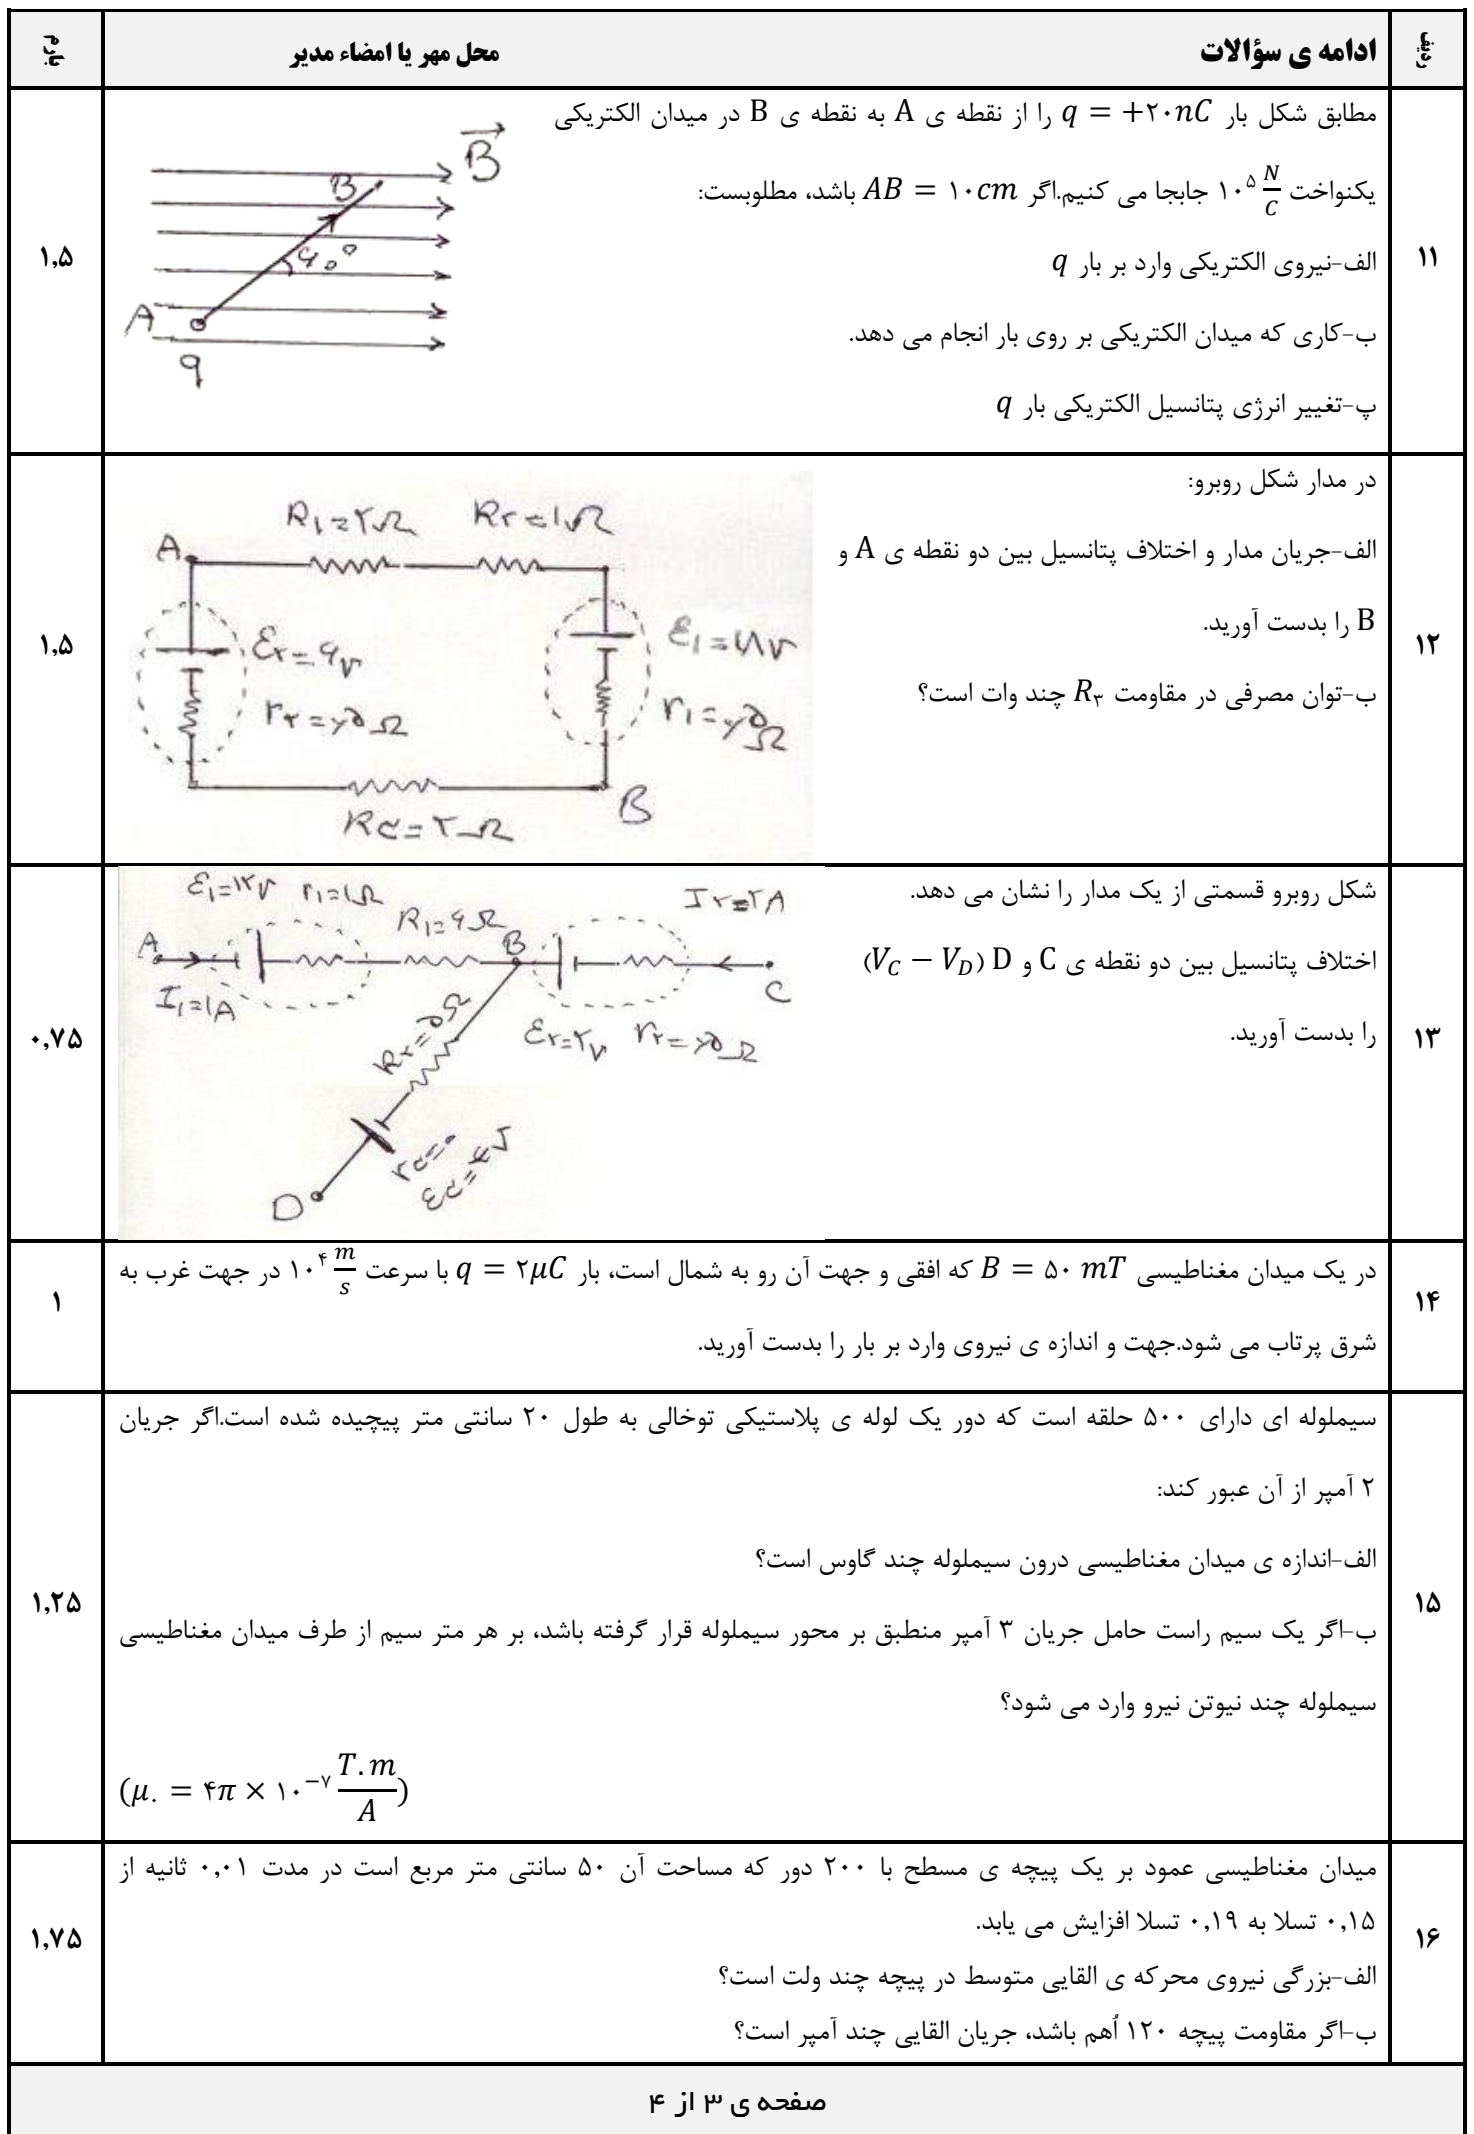 ردیف
ادامه ی سؤالات
محل مهر یا امضاء مدیر
بارم
۱۱
مطابق شکل بار q = +۲۰nC را از نقطه ی A به نقطه ی B در میدان الکتریکی
یکنواخت ۱۰^۵ N/C جابجا می کنیم.اگر AB = ۱۰cm باشد، مطلوبست:
الف-نیروی الکتریکی وارد بر بار q
ب-کاری که میدان الکتریکی بر روی بار انجام می دهد.
پ-تغییر انرژی پتانسیل الکتریکی بار q
B
B
۶۰°
A
q
۱,۵
۱۲
در مدار شکل روبرو:
الف-جریان مدار و اختلاف پتانسیل بین دو نقطه ی A و
B را بدست آورید.
ب-توان مصرفی در مقاومت R۳ چند وات است؟
R۱=۲Ω R۲=۱Ω
A
ε۲=۶v
r۲=۰/۵Ω
r۱=۰/۵Ω
B
R۳=۲Ω
۱,۵
۱۳
شکل روبرو قسمتی از یک مدار را نشان می دهد.
اختلاف پتانسیل بین دو نقطه ی C و D (V_C − V_D)
را بدست آورید.
ε۱=۱۲v r۱=۱Ω
R۱=۶Ω
I۲=۲A
A
B
C
I۱=۱A
R۲=۵Ω
ε۲=۲v r۲=۰/۵Ω
r۳=۰
ε۳=۴v
D
۰,۷۵
۱۴
در یک میدان مغناطیسی B = ۵۰ mT که افقی و جهت آن رو به شمال است، بار q = ۲μC با سرعت ۱۰^۴ m/s در جهت غرب به
شرق پرتاب می شود.جهت و اندازه ی نیروی وارد بر بار را بدست آورید.
۱
۱۵
سیملوله ای دارای ۵۰۰ حلقه است که دور یک لوله ی پلاستیکی توخالی به طول ۲۰ سانتی متر پیچیده شده است.اگر جریان
۲ آمپر از آن عبور کند:
الف-اندازه ی میدان مغناطیسی درون سیملوله چند گاوس است؟
ب-اگر یک سیم راست حامل جریان ۳ آمپر منطبق بر محور سیملوله قرار گرفته باشد، بر هر متر سیم از طرف میدان مغناطیسی
سیملوله چند نیوتن نیرو وارد می شود؟
(μ۰ = ۴π × ۱۰^−۷ T.m/A)
۱,۲۵
۱۶
میدان مغناطیسی عمود بر یک پیچه ی مسطح با ۲۰۰ دور که مساحت آن ۵۰ سانتی متر مربع است در مدت ۰,۰۱ ثانیه از
۰,۱۵ تسلا به ۰,۱۹ تسلا افزایش می یابد.
الف-بزرگی نیروی محرکه ی القایی متوسط در پیچه چند ولت است؟
ب-اگر مقاومت پیچه ۱۲۰ اُهم باشد، جریان القایی چند آمپر است؟
۱,۷۵
صفحه ی ۳ از ۴